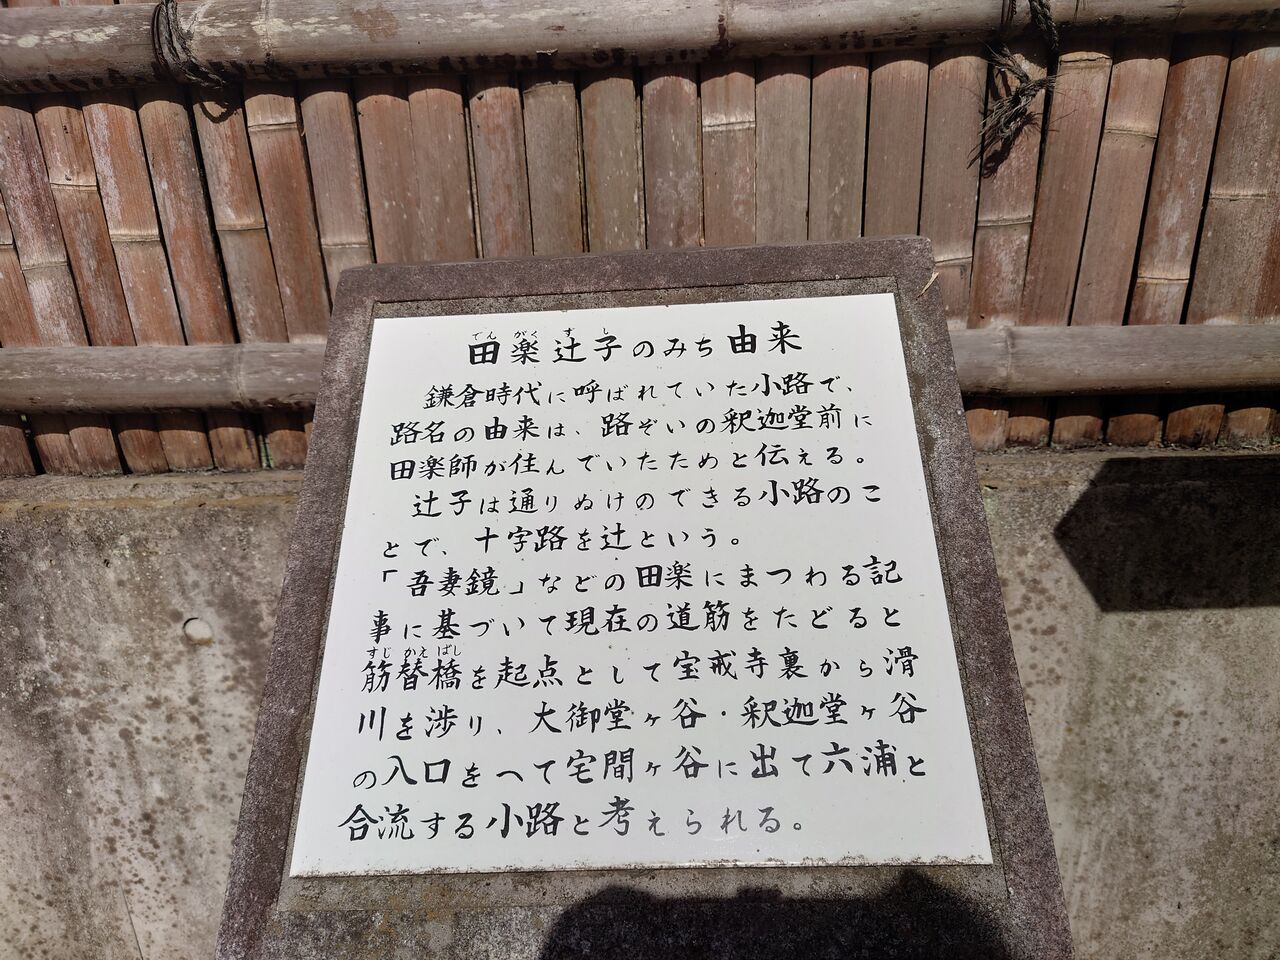 でんがくずし
田楽辻子のみち由来
鎌倉時代に呼ばれていた小路で、
路名の由来は、路ぞいの釈迦堂前に
田楽師が住んでいたためと伝える。
辻子は通りぬけのできる小路のこ
とで、十字路を辻という。
「吾妻鏡」などの田楽にまつわる記
事に基づいて現在の道筋をたどると
すじかえばし
筋替橋を起点として宝戒寺裏から滑
川を渉り、大御堂ヶ谷・釈迦堂ヶ谷
の入口をへて宅間ヶ谷に出て六浦と
合流する小路と考えられる。